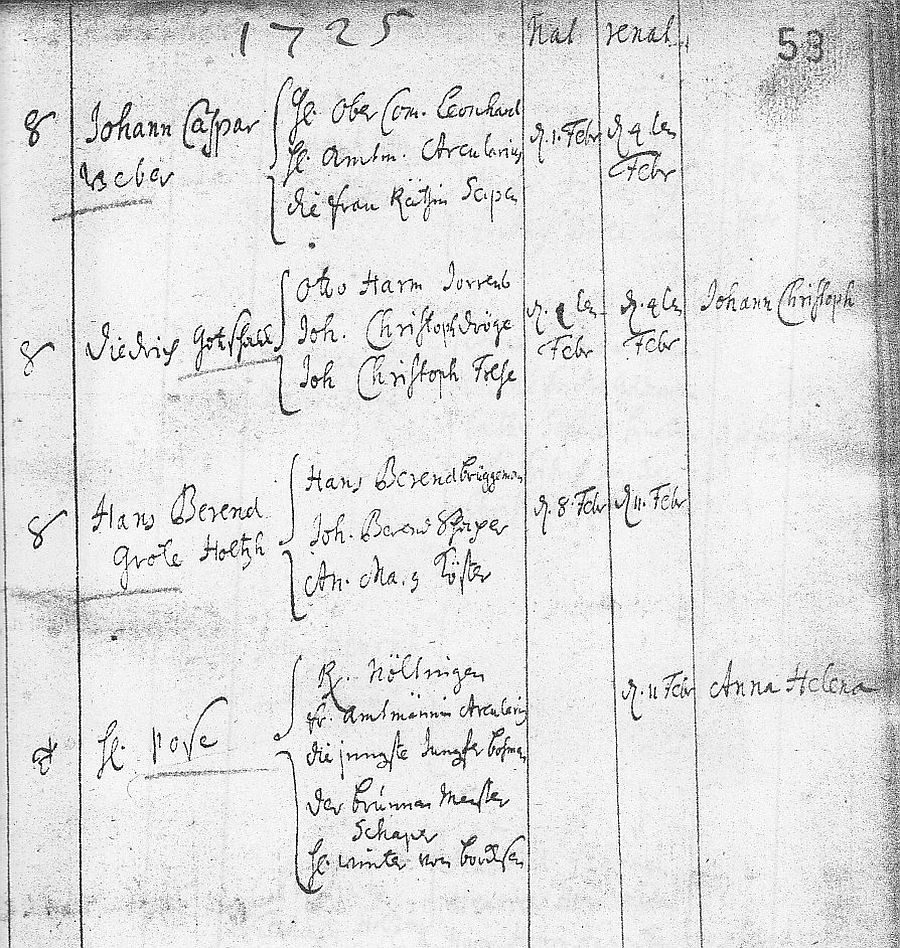 1725 Nat renat. 53
Johann Caspar
Weber
H. Ober Com. Leonhard
H. Amtm. Arcularius
die frau Räthin
d. 1. Febr
d. 4 ten
Febr
Diedrich Gotschalk
Otto Harm
Joh. Christoph dröge
Joh Christoph Frese
d. 4 ten
Febr
d. 4 ten
Febr
Johann Christoph
Hans Berend
Grote Holtzh
Hans Berend brüggeman
Joh. Berend Schaper
An. Ma. Köster
d. 8. Febr
d. 11. Febr
H. Rose
R. Nöltingen
fr. Amtmännin Arcularius
die jungste Jungfer
der brunnen Meister
Schaper
H. winter von
d. 11 Febr
Anna Helena